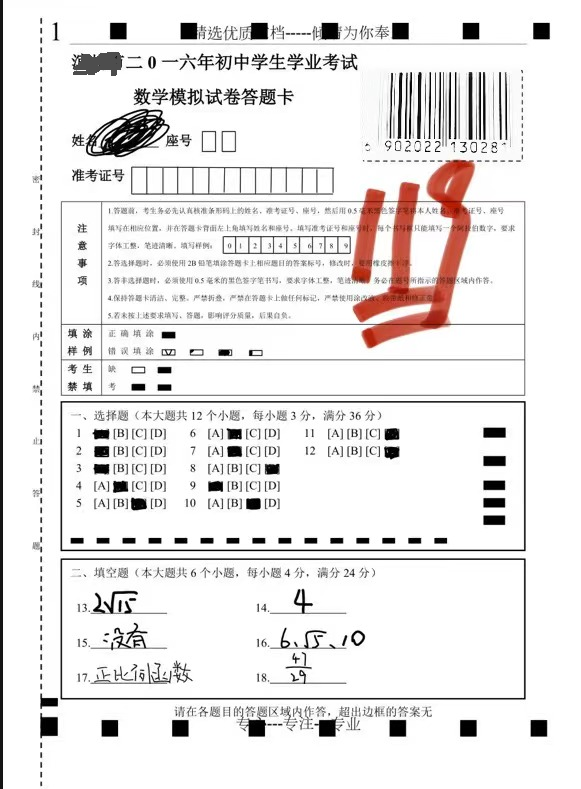 1
请选优质 档-----倾 为你奉
市二0一六年初中学生学业考试
数学模拟试卷答题卡
姓名 座号
6 902022 130281
准考证号
注意事项
1.答题前，考生务必先认真核准条形码上的姓名、准考证号、座号，然后用0.5毫米黑色签字笔将本人姓名、准考证号、座号
填写在相应位置，并在答题卡背面左上角填写姓名和座号。填写准考证号和座号时，每个书写框只能填写一个阿拉伯数字，要求
字体工整，笔迹清晰。填写样例： 0 1 2 3 4 5 6 7 8 9
2.答选择题时，必须使用2B铅笔填涂答题卡上相应题目的答案标号，修改时，要用橡皮擦干净。
3.答非选择题时，必须使用0.5毫米的黑色签字笔书写，要求字体工整，笔迹清晰，务必在题号所指示的答题区域内作答。
4.保持答题卡清洁、完整，严禁折叠，严禁在答题卡上做任何标记，严禁使用涂改液、胶带纸和修正带。
5.若未按上述要求填写、答题，影响评分质量，后果自负。
填涂样例
正确填涂
错误填涂
考生禁填
缺
考
密封线内禁止答题
一、选择题（本大题共12个小题，每小题3分，满分36分）
1 [B] [C] [D] 6 [A] [C] [D] 11 [A] [B] [C]
2 [B] [C] [D] 7 [A] [C] [D] 12 [A] [B] [C]
3 [B] [C] [D] 8 [A] [B] [C]
4 [A] [C] [D] 9 [B] [C] [D]
5 [A] [B] [D] 10 [A] [B] [D]
二、填空题（本大题共6个小题，每小题4分，满分24分）
13. 2√15 14. 4
15. 没有 16. 6、√5、10
17. 正比例函数 18. 47/29
请在各题目的答题区域内作答，超出边框的答案无
专心---专注---专业